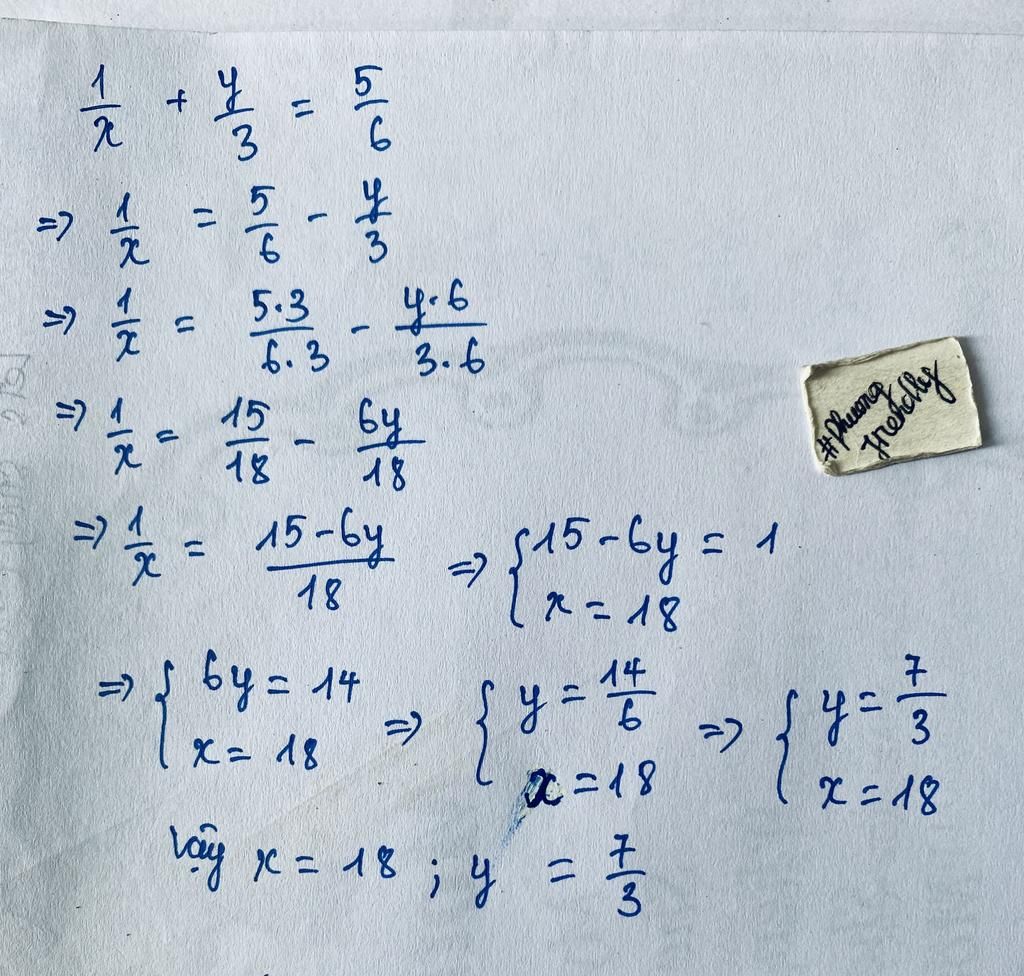 1/x + y/3 = 5/6
=> 1/x = 5/6 - y/3
=> 1/x = 5·3/6·3 - y·6/3·6
=> 1/x = 15/18 - 6y/18
=> 1/x = 15-6y/18 => { 15-6y = 1
x = 18
=> { 6y = 14 => { y = 14/6 => { y = 7/3
x = 18 x = 18 x = 18
Vậy x = 18 ; y = 7/3
#phuong